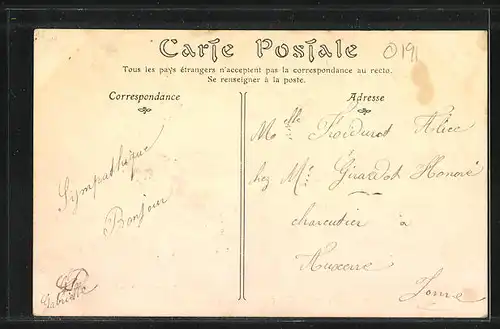 0191
Carte Postale
Tous les pays étrangers n'acceptent pas la correspondance au recto.
Se renseigner à la poste.
Correspondance
Sympathique
Bonjour
Gabrielle
Adresse
Melle Froidurot Alice
chez Mr Girardot Honoré
charcutier à
Auxerre
Yonne